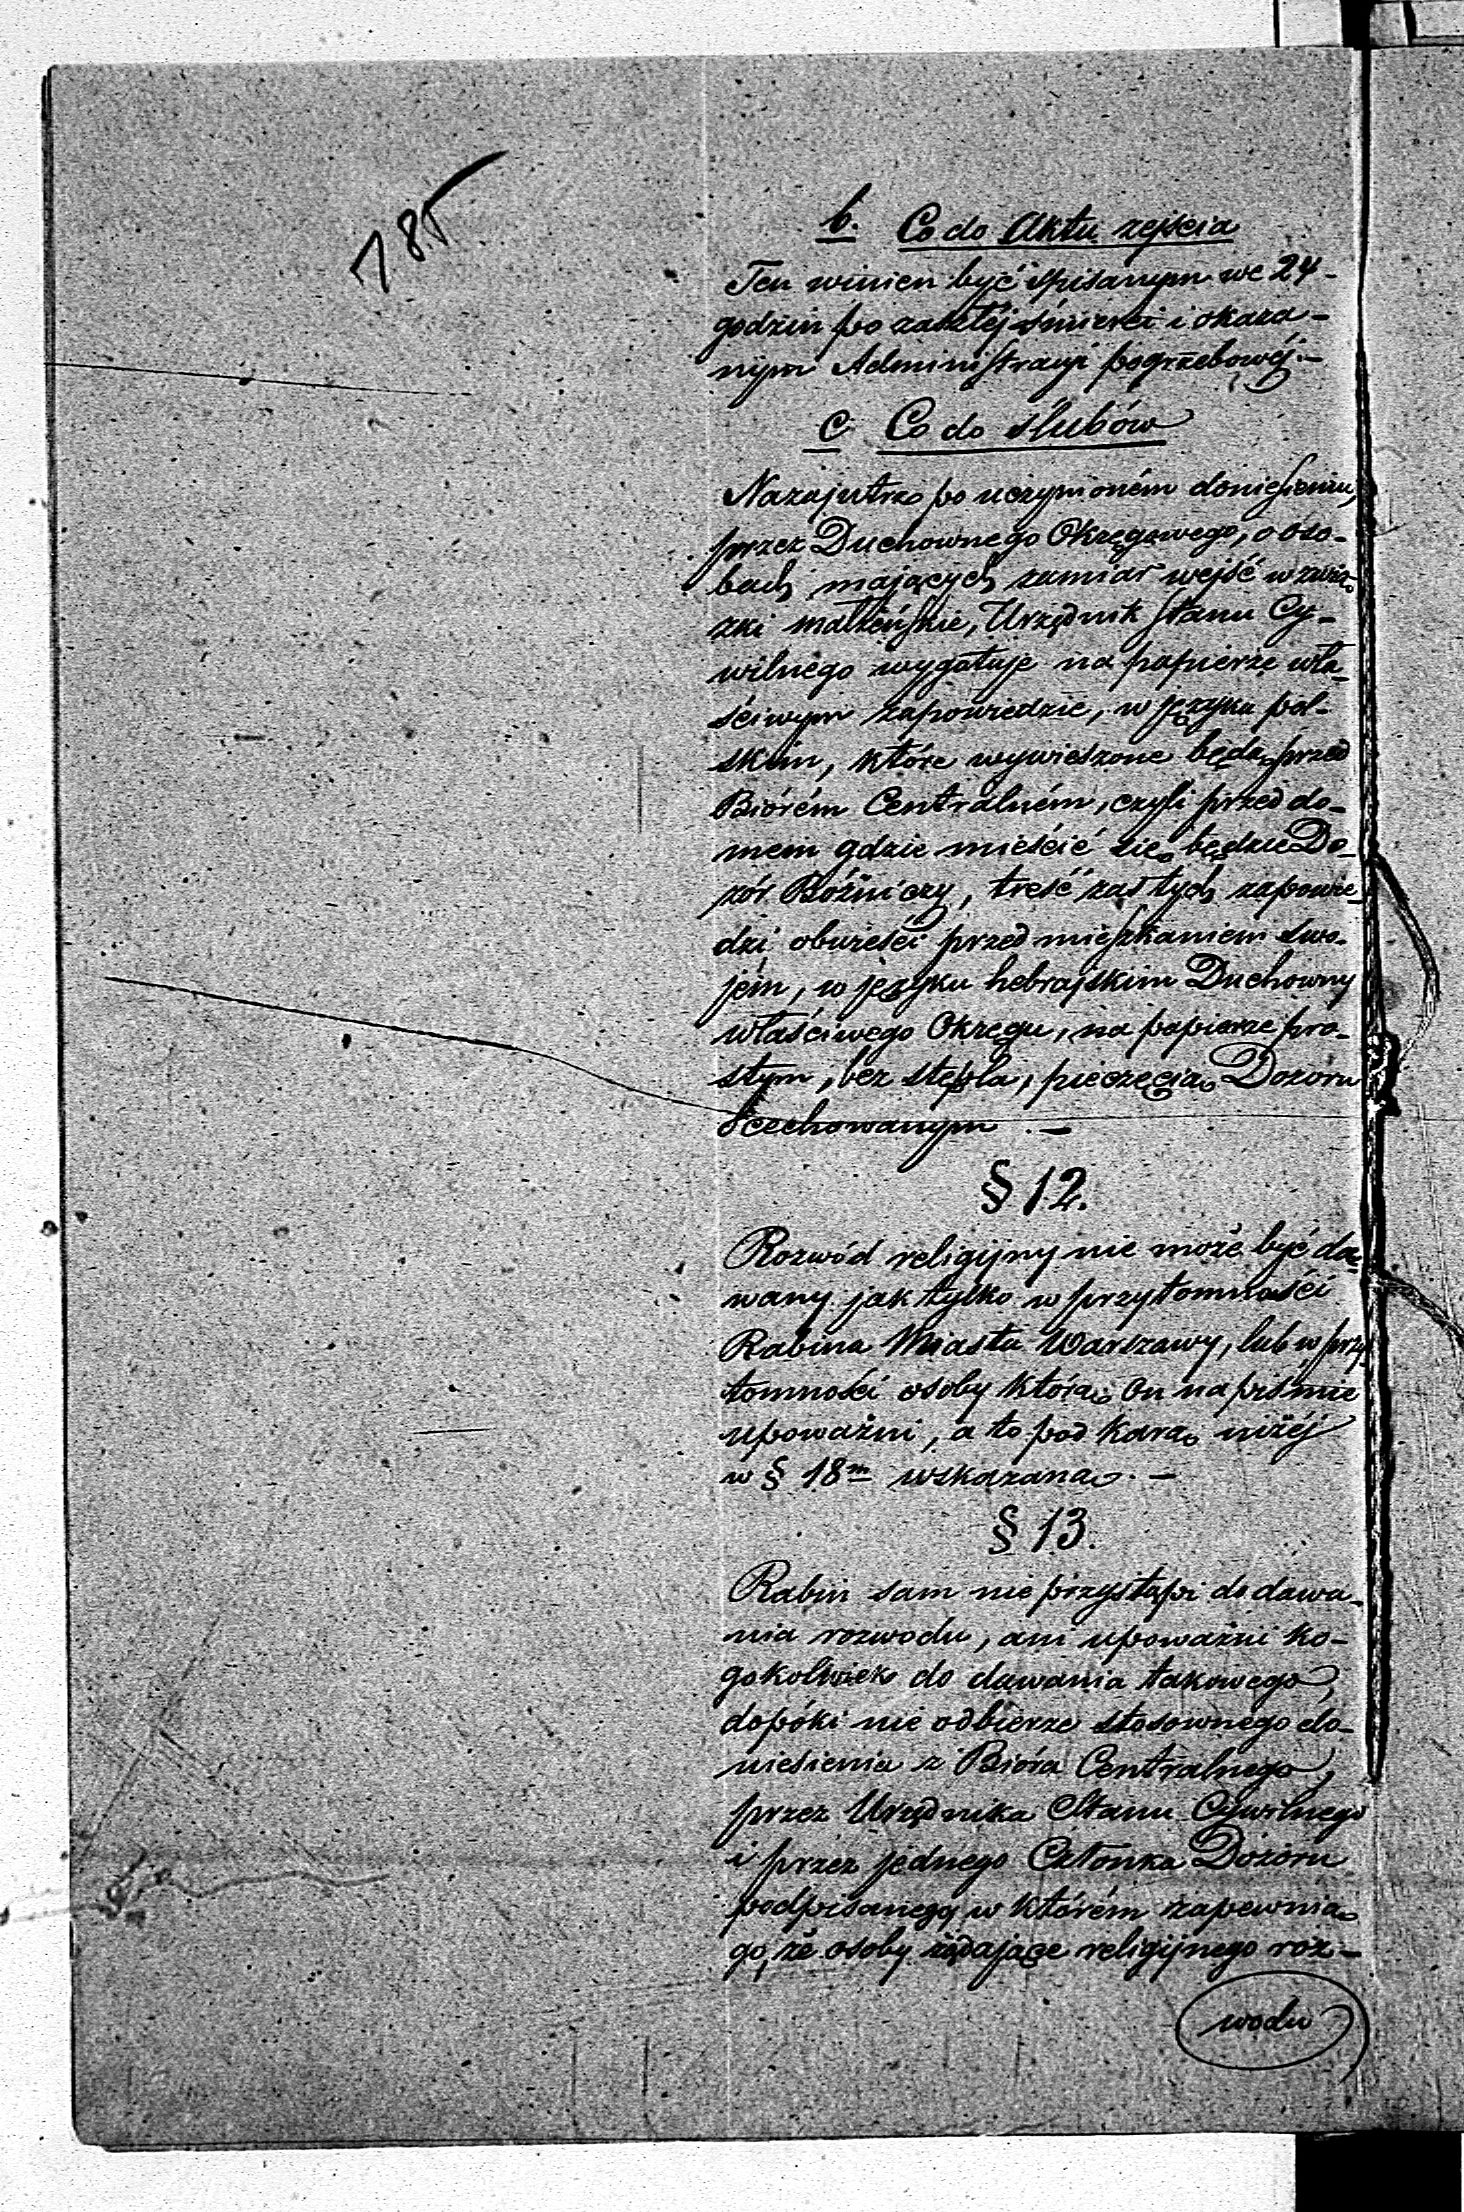 785
b. Co do Aktu zejścia
Ten winien być spisanym we 24-
godzin po zaszłéj śmierci i okaza-
nym Administracyi pogrzebowéj.—
c Co do ślubów
Nazajutrz po uczynioném doniesieniu,
przez Duchownego Okręgowego, o oso-
bach mających zamiar wejść w zwią-
zki małżeńskie, Urzędnik Stanu Cy-
wilnego wygotuje na papierze wła-
ściwym zapowiedzie, w języku pol-
skim, które wywieszone będą przed
Biórém Centralném, czyli przed do-
mem gdzie mieścić się będzie Do-
zór Bóżniczy, treść zaś tych zapowie-
dzi obwieści przed mieszkaniem swo-
jém, w języku hebrajskim Duchowny
właściwego Okręgu, na papierze pro-
stym, bez stępla, pieczęcią Dozoru
ocechowanym.—
§ 12.
Rozwód religijny nie może być da-
wany jak tylko w przytomności
Rabina Miasta Warszawy, lub w przy-
tomności osoby którą On na piśmie
upoważni, a to pod karą niżéj
w § 18m wskazaną.—
§ 13.
Rabin sam nie przystąpi do dawa-
nia rozwodu, ani upoważni ko-
gokolwiek do dawania takowego,
dopóki nie odbierze stosownego do-
niesienia z Bióra Centralnego,
przez Urzędnika Stanu Cywilnego
i przez jednego Członka Dozoru
podpisanego w którém zapewnią
go, że osoby żądające religijnego roz-
wodu